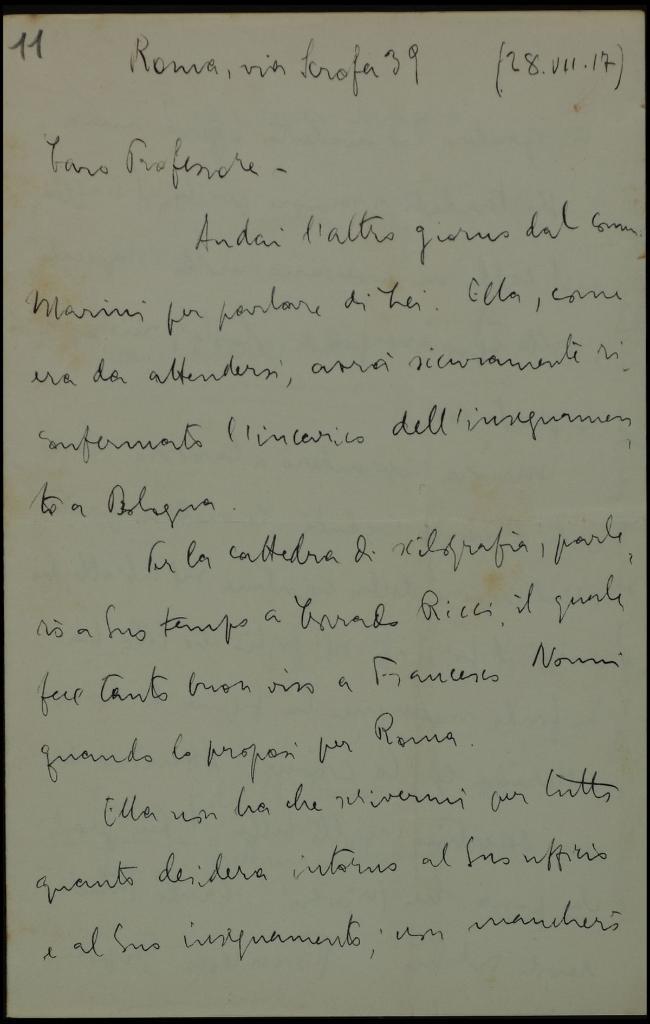 11
Roma, via Scrofa 39 (28.VII.17)
Caro Professore -
Andai l'altro giorno dal Comm.
Marini per parlare di Lei. Ella, come
era da attendersi, avrà sicuramente ri-
confermato l'incarico dell'insegnamen-
to a Bologna.
Per la cattedra di xilografia, parle-
rò a Suo tempo a Corrado Ricci, il quale
fece tanto buon viso a Francesco Nonni
quando lo proposi per Roma.
Ella non ha che scrivermi per tutto
quanto desidera intorno al Suo uffizio
e al Suo insegnamento; non mancherò